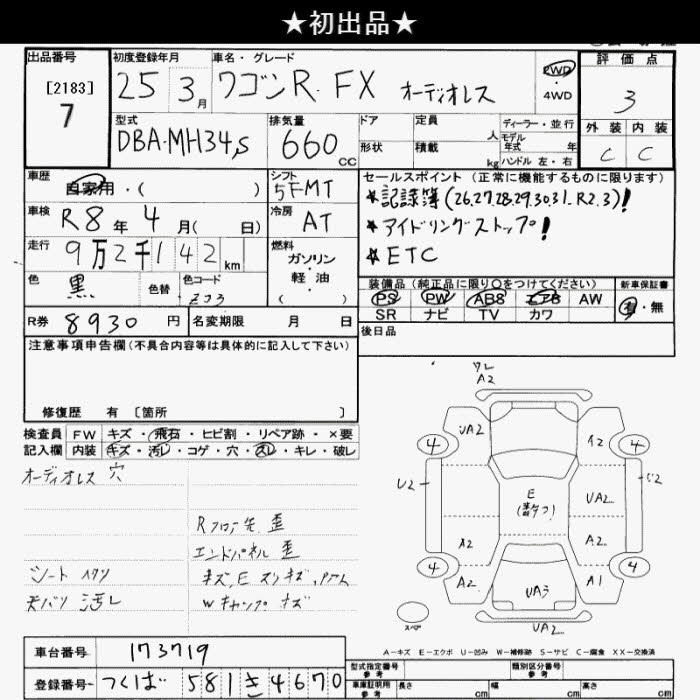 ★初出品★
出品番号
[2183]
7
初度登録年月
25 3月
車名・グレード
ワゴンR FX オーディオレス
2WD
4WD
評価点
3
外装 内装
C C
型式
DBA-MH34S
排気量
660 CC
ドア
形状
定員
人
積載
kg
ディーラー・並行
モデル
年式 年
ハンドル 左・右
車歴
自家用・( )
シフト
5FMT
車検
R8年4月( 日)
冷房
AT
走行
9万2千142km
燃料
ガソリン
・
軽・油
( )
色
黒
色替
色コード
ZJ3
セールスポイント(正常に機能するものに限ります)
★記録簿(26.27.28.29.30.31.R2.3)!
★アイドリングストップ!
★ETC
装備品(純正品に限り○をつけてください)
新車保証書
PS PW ABS エアB AW
SR ナビ TV カワ
有・無
R券 8930円
名変期限 月 日
後日品
注意事項申告欄(不具合内容等は具体的に記入して下さい)
修復歴 有 〔箇所 〕
検査員 FW キズ・飛石・ヒビ割・リペア跡・×要
記入欄 内装 キズ・汚レ・コゲ・穴・スレ・キレ・破レ
オーディオレス 穴
Rフロア先 歪
エンドパネル 歪
シート
天バリ 汚レ
Wキャップ キズ
ワレ
A2
UA2
4
4
U2
E
UA2
A2
A2
A2
A1
4
4
UA3
UA2
スペア
A-キズ E-エクボ U-凹み W-補修跡 S-サビ C-腐食 XX-交換済
車台番号 173719
登録番号 つくば 581 き 4670
型式指定番号
参考
類別区分番号
参考
車庫証明用
参考
長さ cm 幅 cm 高さ cm